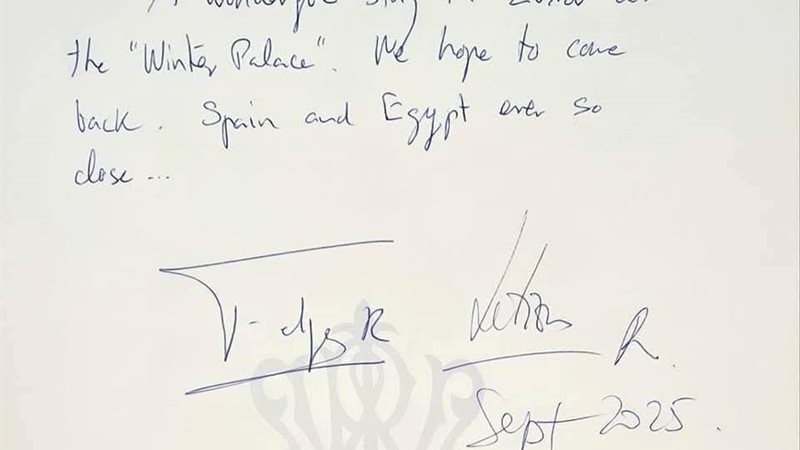 A wonderful stay in Luxor at
the "Winter Palace". We hope to come
back. Spain and Egypt ever so
close...
Letizia R.
Sept 2025.